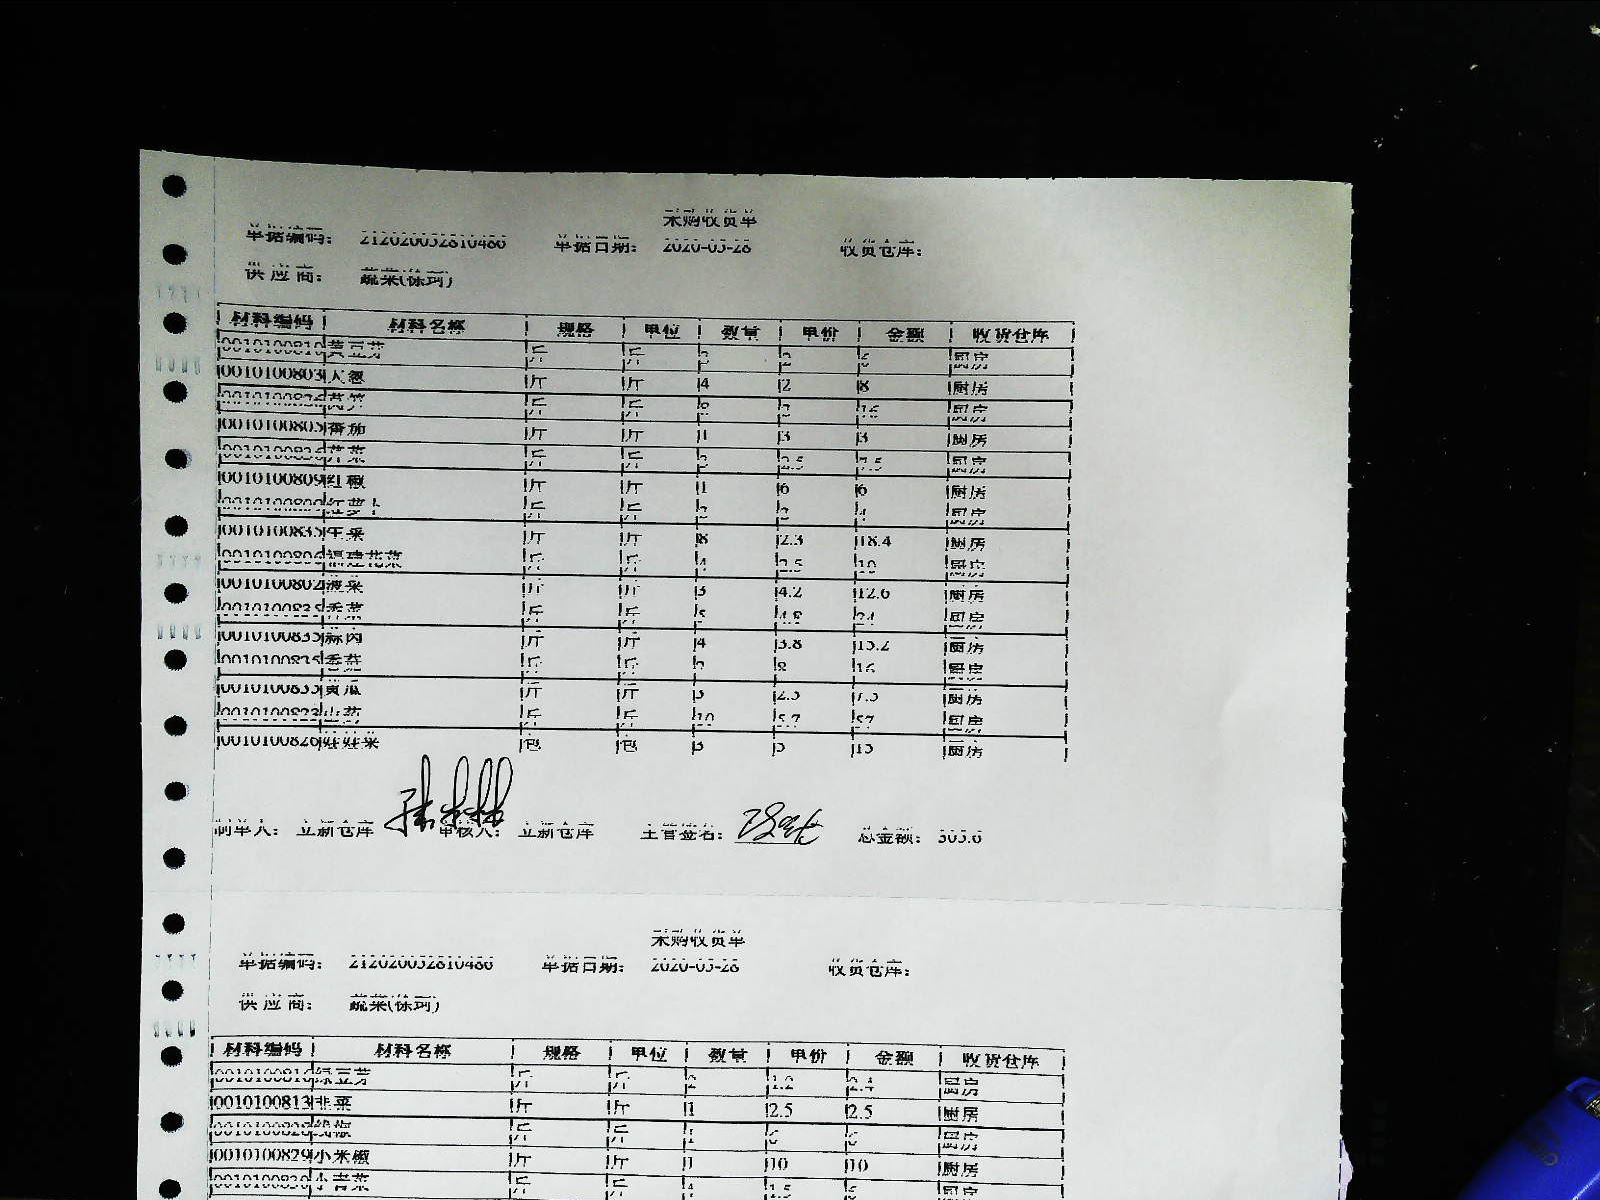 采购收货单
单据编码： 212020032810486 单据日期： 2020-03-28 收货仓库：
供应商： 蔬菜(徐珂)
材料编码 材料名称 规格 单位 数量 单价 金额 收货仓库
0010100810 黄豆芽 斤 斤 3 2 6 厨房
0010100803 大葱 斤 斤 4 2 8 厨房
莴笋 斤 斤 8 2 16 厨房
0010100805 番茄 斤 斤 1 3 3 厨房
芹菜 斤 斤 3 2.5 7.5 厨房
0010100809 红椒 斤 斤 1 6 6 厨房
红萝卜 斤 斤 2 2 4 厨房
0010100835 生菜 斤 斤 8 2.3 18.4 厨房
0010100806 福建花菜 斤 斤 4 2.5 10 厨房
0010100802 菠菜 斤 斤 3 4.2 12.6 厨房
0010100835 香菜 斤 斤 5 4.8 24 厨房
0010100835 蒜肉 斤 斤 4 3.8 15.2 厨房
0010100835 香菇 斤 斤 2 8 16 厨房
0010100833 黄瓜 斤 斤 3 2.5 7.5 厨房
0010100823 山药 斤 斤 10 5.7 57 厨房
0010100826 娃娃菜 包 包 3 5 15 厨房
制单人： 立新仓库 审核人： 立新仓库 主管签名： 总金额：
采购收货单
单据编码： 212020032810486 单据日期： 2020-03-28 收货仓库：
供应商： 蔬菜(徐珂)
材料编码 材料名称 规格 单位 数量 单价 金额 收货仓库
0010100816 绿豆芽 斤 斤 2 1.2 2.4 厨房
0010100813 韭菜 斤 斤 1 2.5 2.5 厨房
0010100828 线椒 斤 斤 1 6 6 厨房
0010100829 小米椒 斤 斤 1 10 10 厨房
0010100830 小青菜 斤 斤 4 1.5 6 厨房